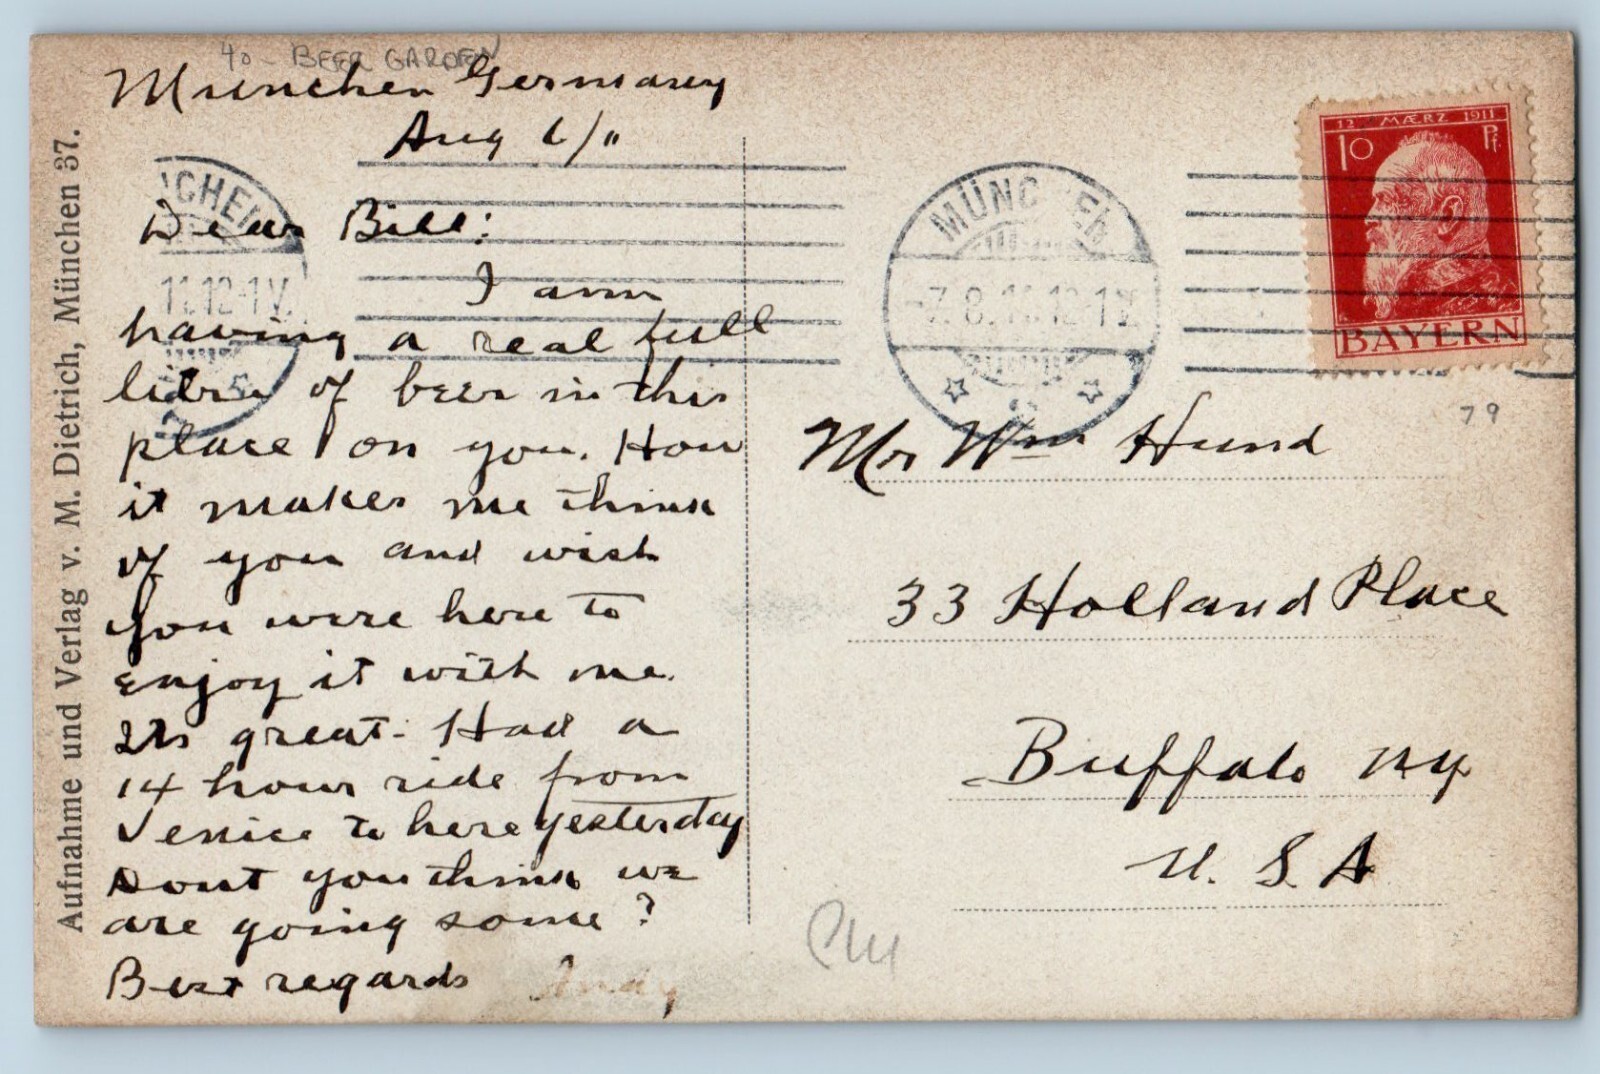 40 - BEER GARDEN
München Germany
Aug 6/11
Dear Bill:
I am
having a real full
litre of beer in this
place on you. How
it makes me think
of you and wish
you were here to
enjoy it with me.
Its great. Had a
14 hour ride from
Venice to here yesterday
Dont you think we
are going some?
Best regards Andy
Aufnahme und Verlag v. M. Dietrich, München 37.
CHEN
11.12-1V.
MÜNCHEN
-7.8.11.12-1V.
12 MÆRZ 1911
10 Pf.
BAYERN
79
Mr Wm Hund
33 Holland Place
Buffalo NY
U.S.A